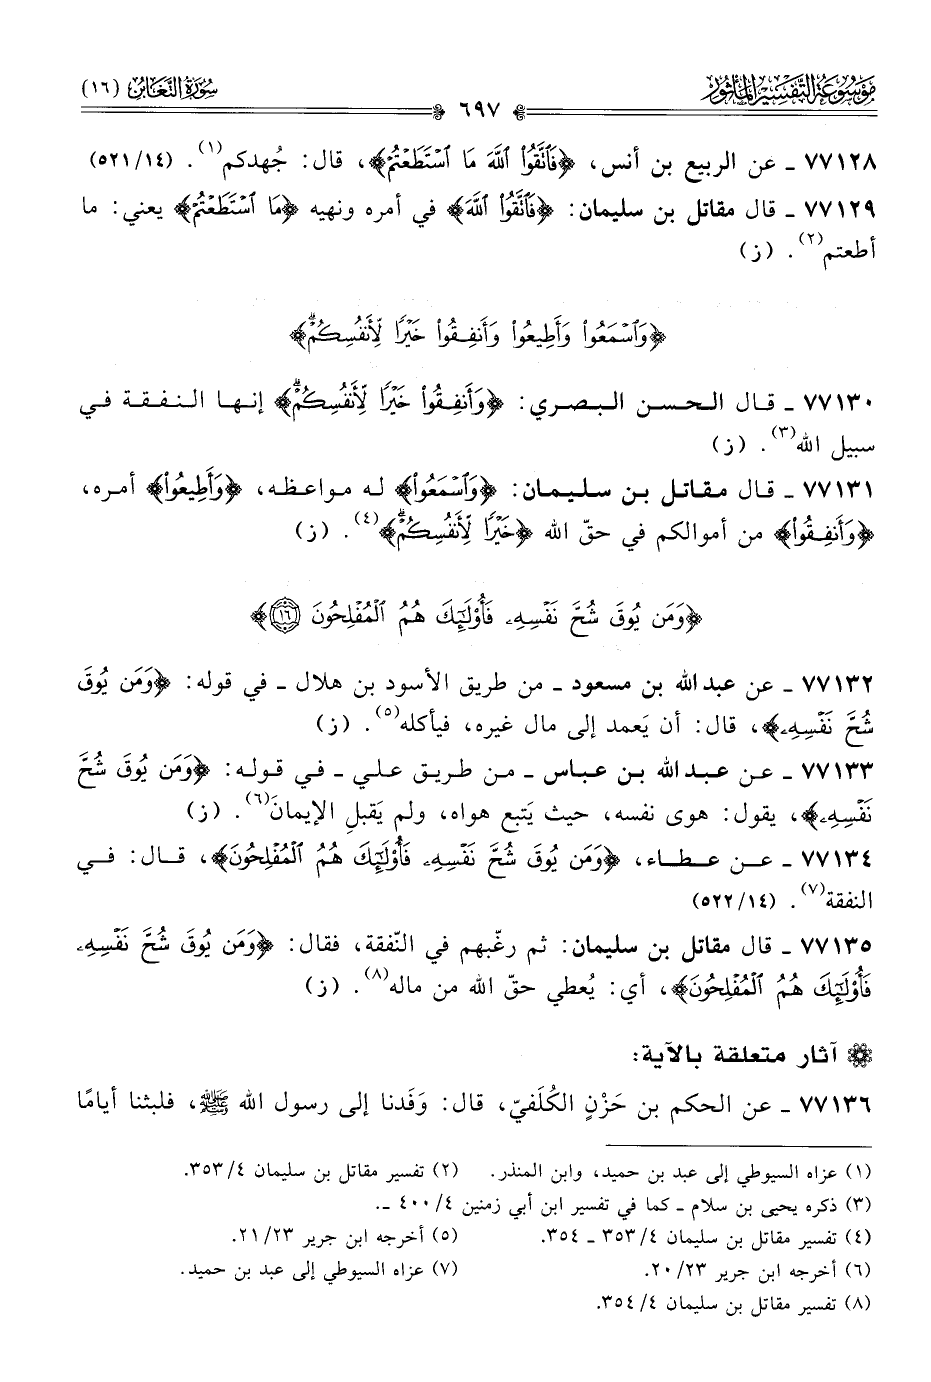 مَوْسُوعَة التَّفْسِير المَأثُور
سُورَة التَّغَابُن (١٦)
٦٩٧
٧٧١٢٨ ـ عن الربيع بن أنس، ﴿فَٱتَّقُوا۟ ٱللَّهَ مَا ٱسْتَطَعْتُمْ﴾، قال: جُهدكم(١). (٥٢١/١٤)
٧٧١٢٩ ـ قال مقاتل بن سليمان: ﴿فَٱتَّقُوا۟ ٱللَّهَ﴾ في أمره ونهيه ﴿مَا ٱسْتَطَعْتُمْ﴾ يعني: ما
أطعتم(٢). (ز)
﴿وَٱسْمَعُوا۟ وَأَطِيعُوا۟ وَأَنفِقُوا۟ خَيْرًا لِّأَنفُسِكُمْۗ﴾
٧٧١٣٠ ـ قال الحسن البصري: ﴿وَأَنفِقُوا۟ خَيْرًا لِّأَنفُسِكُمْۗ﴾ إنها النفقة في
سبيل الله(٣). (ز)
٧٧١٣١ ـ قال مقاتل بن سليمان: ﴿وَٱسْمَعُوا۟﴾ له مواعظه، ﴿وَأَطِيعُوا۟﴾ أمره،
﴿وَأَنفِقُوا۟﴾ من أموالكم في حقّ الله ﴿خَيْرًا لِّأَنفُسِكُمْۗ﴾(٤). (ز)
﴿وَمَن يُوقَ شُحَّ نَفْسِهِۦ فَأُو۟لَٰٓئِكَ هُمُ ٱلْمُفْلِحُونَ ١٦﴾
٧٧١٣٢ ـ عن عبد الله بن مسعود ـ من طريق الأسود بن هلال ـ في قوله: ﴿وَمَن يُوقَ
شُحَّ نَفْسِهِۦ﴾، قال: أن يَعمد إلى مال غيره، فيأكله(٥). (ز)
٧٧١٣٣ ـ عن عبد الله بن عباس ـ من طريق علي ـ في قوله: ﴿وَمَن يُوقَ شُحَّ
نَفْسِهِۦ﴾، يقول: هوى نفسه، حيث يَتبع هواه، ولم يَقبلِ الإيمانَ(٦). (ز)
٧٧١٣٤ ـ عن عطاء، ﴿وَمَن يُوقَ شُحَّ نَفْسِهِۦ فَأُو۟لَٰٓئِكَ هُمُ ٱلْمُفْلِحُونَ﴾، قال: في
النفقة(٧). (٥٢٢/١٤)
٧٧١٣٥ ـ قال مقاتل بن سليمان: ثم رغّبهم في النّفقة، فقال: ﴿وَمَن يُوقَ شُحَّ نَفْسِهِۦ
فَأُو۟لَٰٓئِكَ هُمُ ٱلْمُفْلِحُونَ﴾، أي: يُعطي حقّ الله من ماله(٨). (ز)
آثار متعلقة بالآية:
٧٧١٣٦ ـ عن الحكم بن حَزْنٍ الكُلَفيّ، قال: وَفَدنا إلى رسول الله ﷺ، فلبثنا أيامًا
(١) عزاه السيوطي إلى عبد بن حميد، وابن المنذر. (٢) تفسير مقاتل بن سليمان ٤/ ٣٥٣.
(٣) ذكره يحيى بن سلام ـ كما في تفسير ابن أبي زمنين ٤/ ٤٠٠ ـ.
(٤) تفسير مقاتل بن سليمان ٤/ ٣٥٣ ـ ٣٥٤. (٥) أخرجه ابن جرير ٢٣/ ٢١.
(٦) أخرجه ابن جرير ٢٣/ ٢٠. (٧) عزاه السيوطي إلى عبد بن حميد.
(٨) تفسير مقاتل بن سليمان ٤/ ٣٥٤.